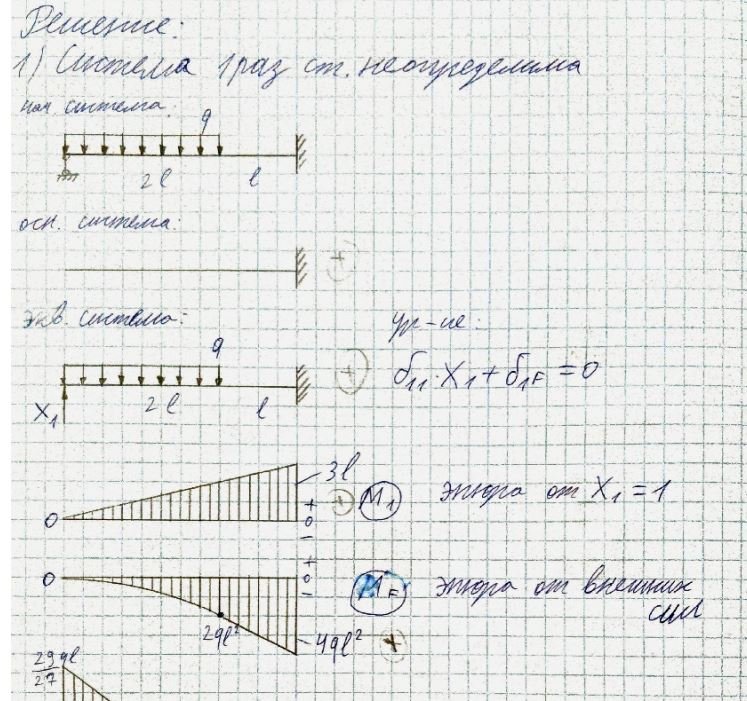 Решение:
1) Система 1 раз ст. неопределима
нач система:
q
2l l
осн. система:
экв. система:
ур-ие:
q
δ11·X1+δ1F=0
2l l
X1
3l
+
0
−
M1 эпюра от X1=1
0
+
0
−
MF эпюра от внешних
сил
2ql²
4ql²
29ql/27